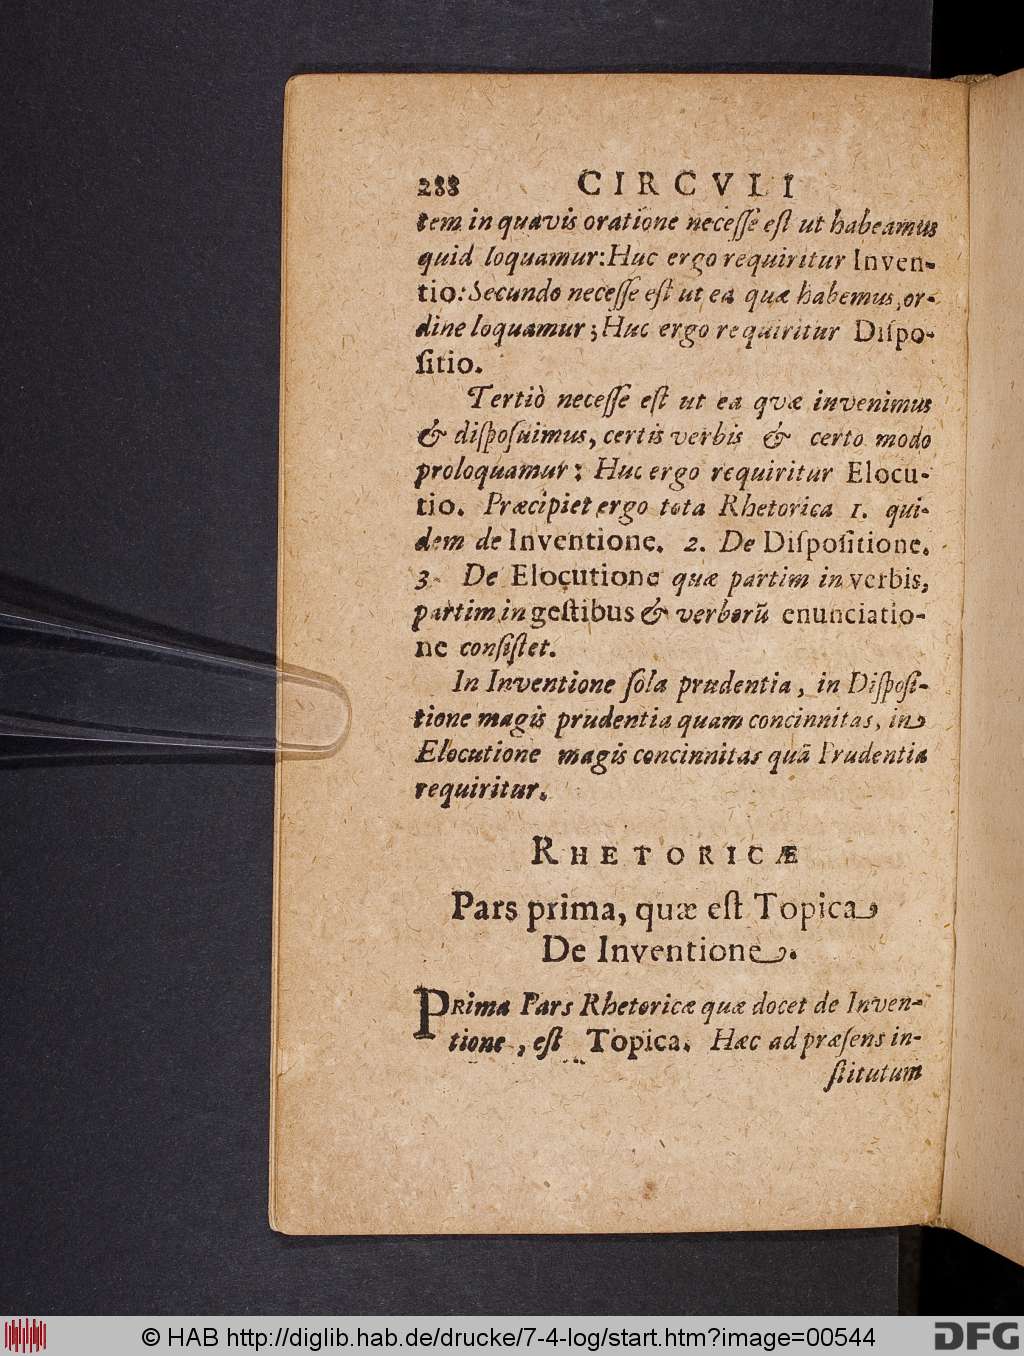 288 CIRCVLI
tem in quavis oratione necesse est ut habeamus
quid loquamur: Huc ergo requiritur Inven-
tio: Secundo necesse est ut ea quæ habemus, or-
dine loquamur; Huc ergo requiritur Dispo-
sitio.
Tertiò necesse est ut ea quæ invenimus
& disposuimus, certis verbis & certo modo
proloquamur; Huc ergo requiritur Elocu-
tio. Præcipiet ergo tota Rhetorica 1. qui-
dem de Inventione. 2. De Dispositione.
3. De Elocutione quæ partim in verbis,
partim in gestibus & verborũ enunciatio-
ne consistet.
In Inventione sola prudentia, in Disposi-
tione magis prudentia quam concinnitas, in
Elocutione magis concinnitas quã Prudentia
requiritur.
RHETORICÆ
Pars prima, quæ est Topica
De Inventione.
PRima Pars Rhetoricæ quæ docet de Inven-
tione, est Topica. Hæc ad præsens in-
stitutum
© HAB http://diglib.hab.de/drucke/7-4-log/start.htm?image=00544
DFG